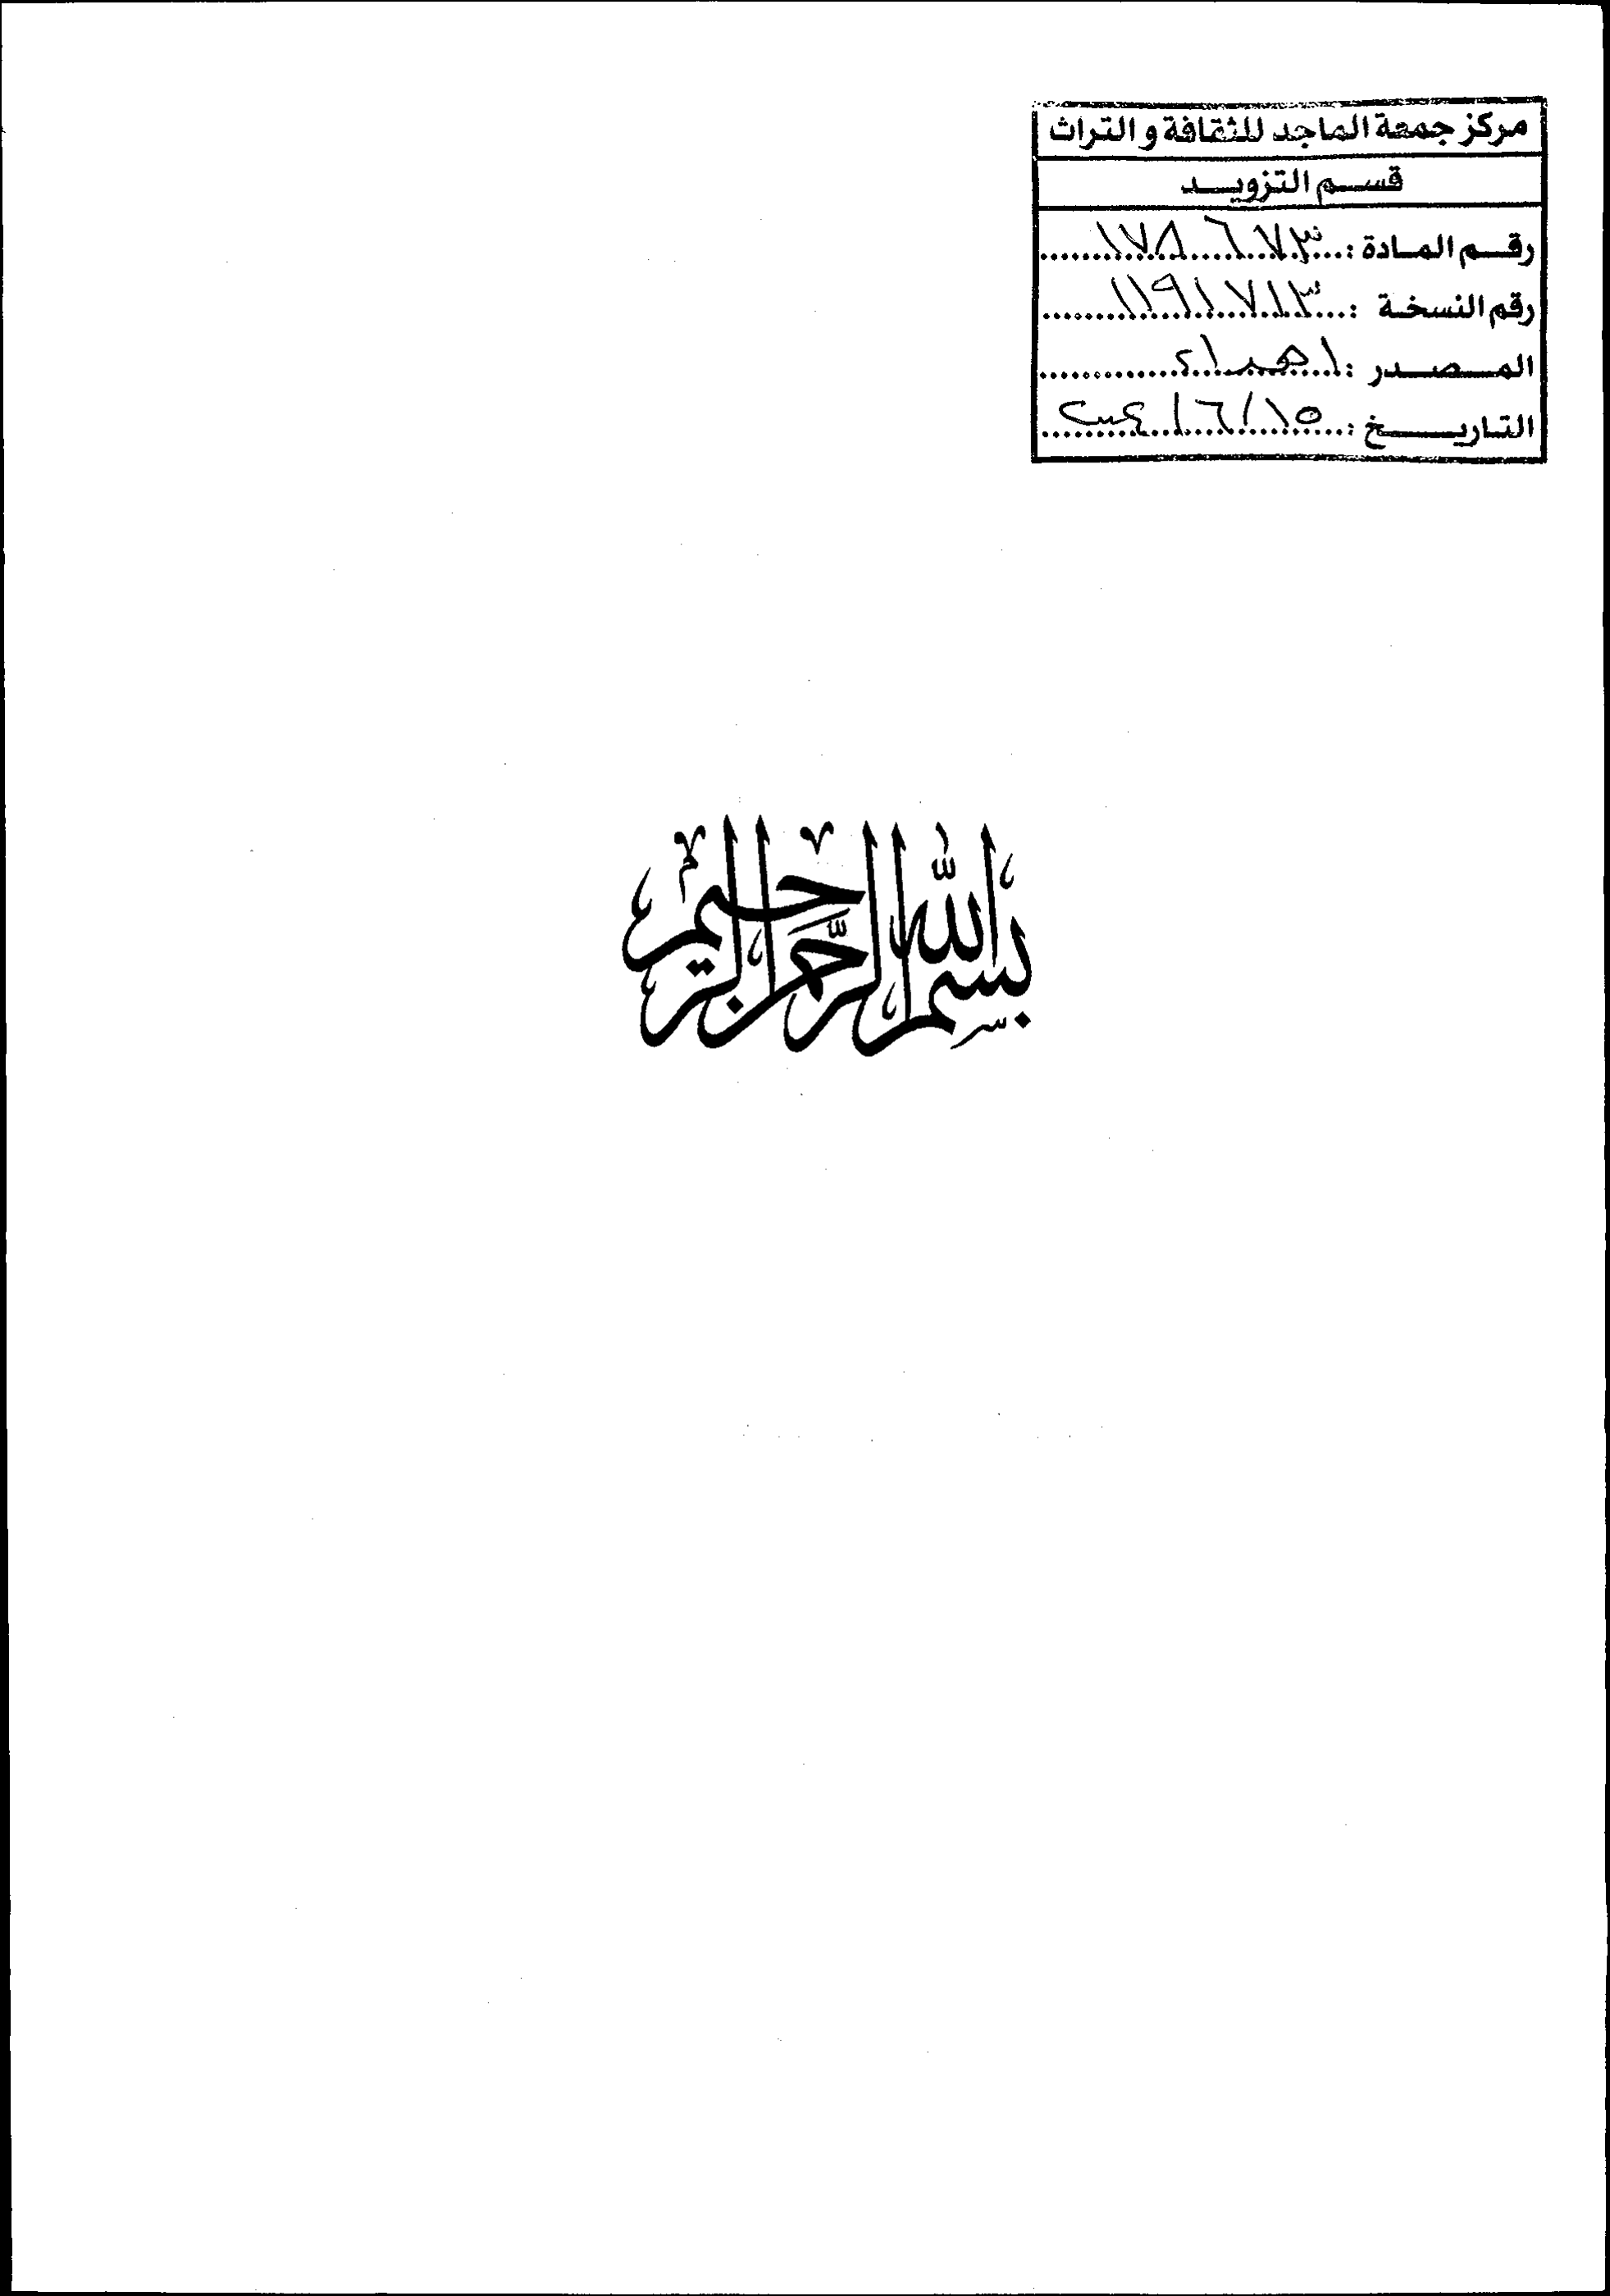 مركز جمعة الماجد للثقافة و التراث
قسم التزويد
رقم المادة : ١٧٨٦٧٣
رقم النسخة : ١١٩١٧١٣
المصدر : اهداء
التاريخ : ١٥ / ٦ /
بسم الله الرحمن الرحيم